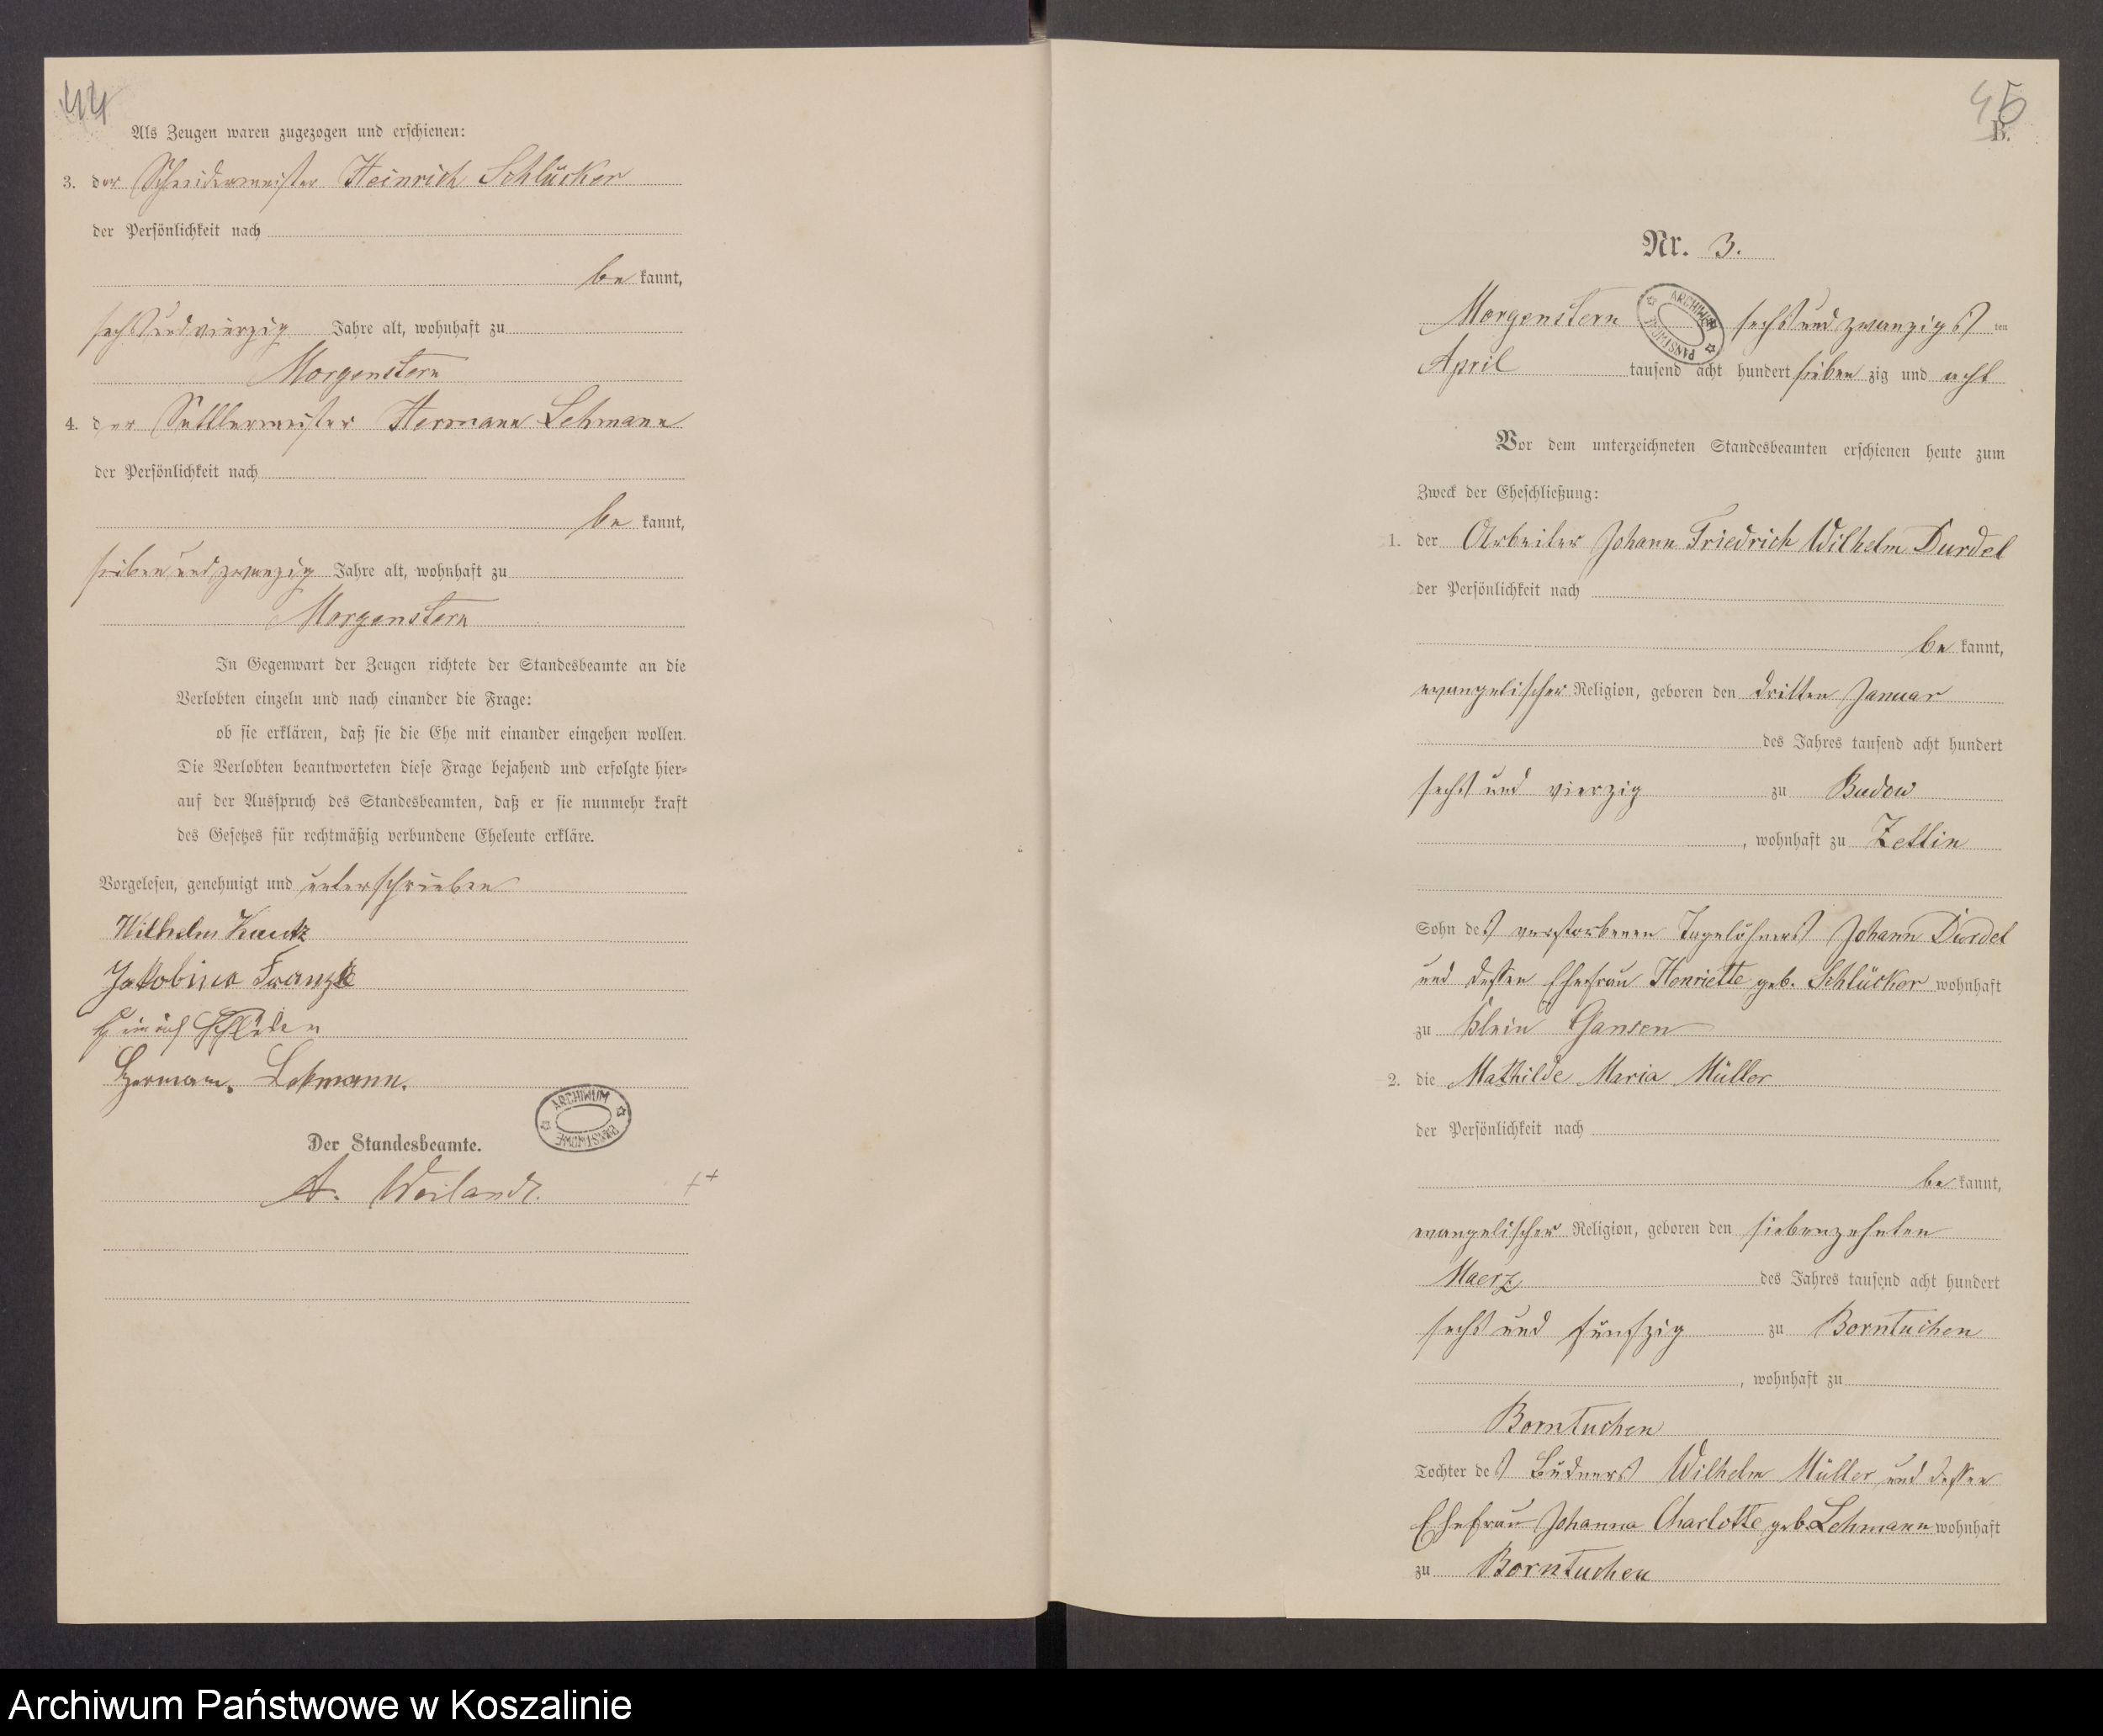 44
Als Zeugen waren zugezogen und erschienen:
3. der Schneidermeister Heinrich Schlücker
der Persönlichkeit nach
be kannt,
sechsundvierzig Jahre alt, wohnhaft zu
Morgenstern
4. der Sattlermeister Hermann Lehmann
der Persönlichkeit nach
be kannt,
siebenundzwanzig Jahre alt, wohnhaft zu
Morgenstern
In Gegenwart der Zeugen richtete der Standesbeamte an die
Verlobten einzeln und nach einander die Frage:
ob sie erklären, daß sie die Ehe mit einander eingehen wollen.
Die Verlobten beantworteten diese Frage bejahend und erfolgte hier-
auf der Ausspruch des Standesbeamten, daß er sie nunmehr kraft
des Gesetzes für rechtmäßig verbundene Eheleute erkläre.
Vorgelesen, genehmigt und unterschrieben
Wilhelm Kautz
Jakobina Franzke
Heinrich
Hermann. Lehmann.
ARCHIWUM PAŃSTWOWE
Der Standesbeamte.
A. Weilandt.
45
B.
Nr. 3.
Morgenstern sechs und zwanzigs ten
ARCHIWUM PAŃSTWOWE
April tausend acht hundert sieben zig und acht
Vor dem unterzeichneten Standesbeamten erschienen heute zum
Zweck der Eheschließung:
1. der Arbeiter Johann Friedrich Wilhelm Durdel
der Persönlichkeit nach
be kannt,
evangelischer Religion, geboren den dritten Januar
des Jahres tausend acht hundert
sechs und vierzig zu Budow
, wohnhaft zu Zettin
Sohn des verstorbenen Tagelöhners Johann Durdel
und dessen Ehefrau Henriette geb. Schlücker wohnhaft
zu Klein Gansen
2. die Mathilde Maria Müller
der Persönlichkeit nach
be kannt,
evangelischer Religion, geboren den siebenzehnten
Maerz des Jahres tausend acht hundert
sechs und fünfzig zu Borntuchen
, wohnhaft zu
Borntuchen
Tochter des Büdners Wilhelm Müller und dessen
Ehefrau Johanna Charlotte geb. Lehmann wohnhaft
zu Borntuchen
Archiwum Państwowe w Koszalinie